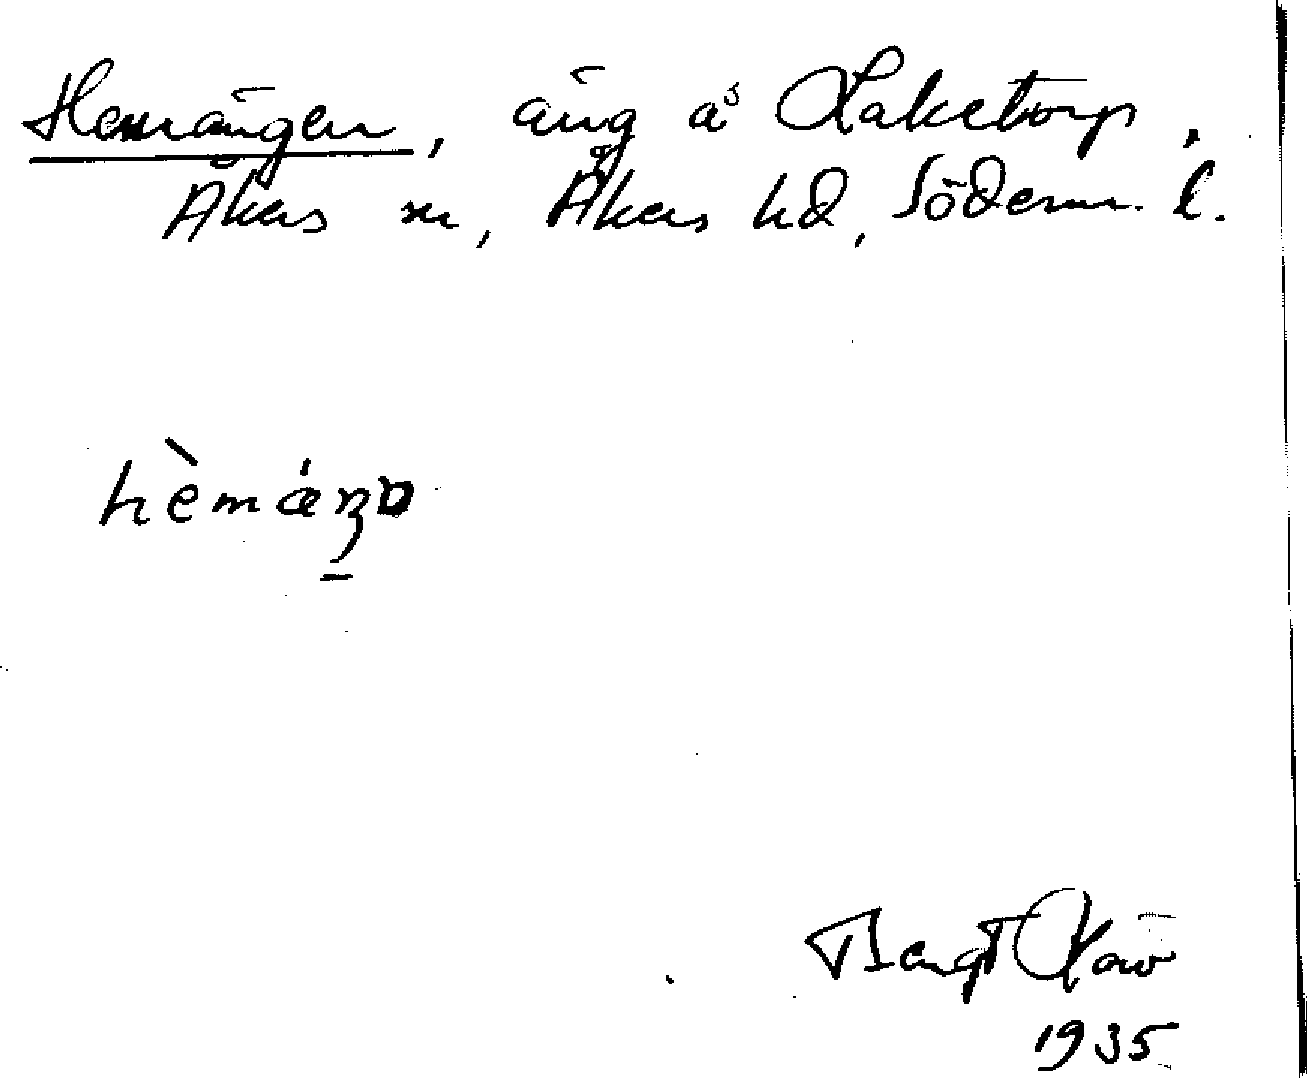 Hemängen, äng å Laketorp,
Åkers sn, Åkers hd, Söderm. l.
hèmáŋo
Bengt
1935